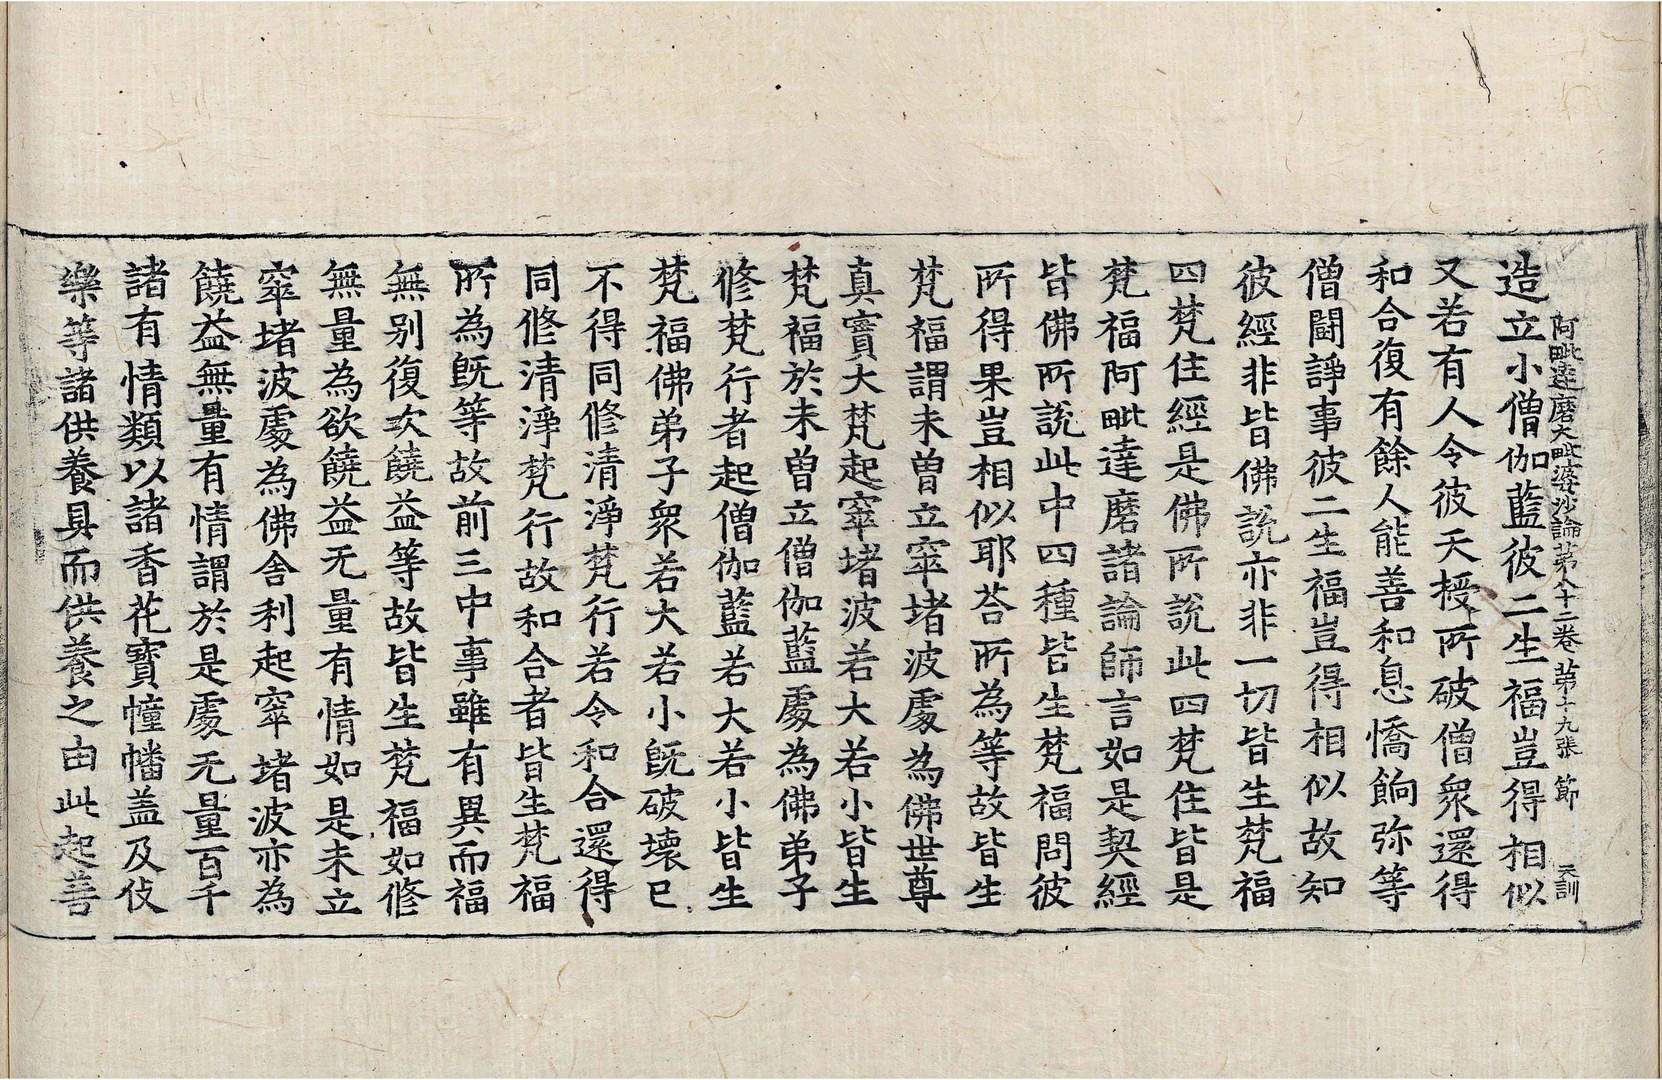 阿毗達磨大毗婆沙論第八十二卷 第十九張 節 天訓
造立小僧伽藍彼二生福豈得相似
又若有人令彼天授所破僧衆還得
和合復有餘人能善和息憍餉弥等
僧鬪諍事彼二生福豈得相似故知
彼經非皆佛說亦非一切皆生梵福
四梵住經是佛所說此四梵住皆是
梵福阿毗達磨諸論師言如是契經
皆佛所說此中四種皆生梵福問彼
所得果豈相似耶荅所為等故皆生
梵福謂未曾立窣堵波處為佛世尊
真實大梵起窣堵波若大若小皆生
梵福於未曾立僧伽藍處為佛弟子
修梵行者起僧伽藍若大若小皆生
梵福佛弟子衆若大若小旣破壞已
不得同修清淨梵行若令和合還得
同修清淨梵行故和合者皆生梵福
所為旣等故前三中事雖有異而福
無別復次饒益等故皆生梵福如修
無量為欲饒益无量有情如是未立
窣堵波處為佛舍利起窣堵波亦為
饒益無量有情謂於是處无量百千
諸有情類以諸香花寶幢幡盖及伎
樂等諸供養具而供養之由此起善